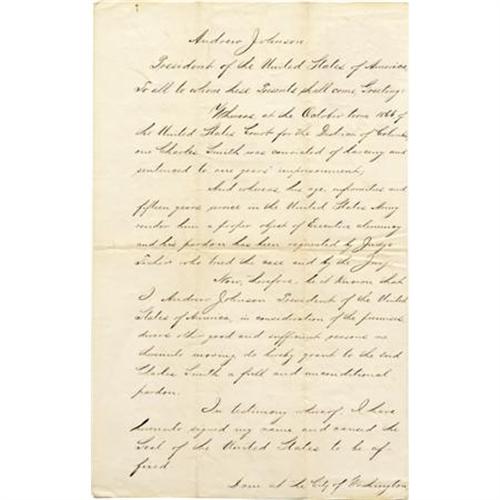 Andrew Johnson
President of the United States of America,
To all to whom these Presents shall come, Greeting:
Whereas at the October term 1866 of
the United States Court for the District of Columbia
one Charles Smith was convicted of larceny and
sentenced to one years' imprisonment;
And whereas his age, infirmities and
fifteen years service in the United States Army
render him a proper object of Executive clemency
and his pardon has been requested by Judge
Fisher who tried the case and by the Jury
Now, therefore, be it known that
I Andrew Johnson President of the United
States of America, in consideration of the premises
divers other good and sufficient reasons me
thereunto moving do hereby grant to the said
Charles Smith a full and unconditional
pardon.
In testimony whereof, I have
hereunto signed my name and caused the
Seal of the United States to be af-
fixed
Done at the City of Washington